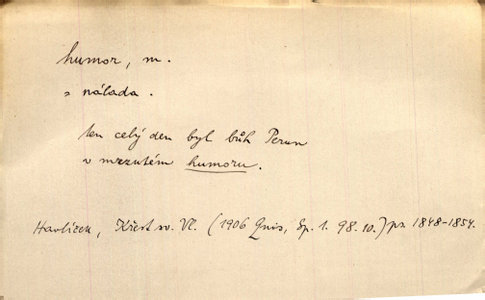 humor, m.
= nálada.
ten celý den byl bůh Perun
v mrzutém humoru.
Havlíček, Křest sv. Vl. (1906 Quis, Sp. 1. 98. 10.) ps. 1848-1854.